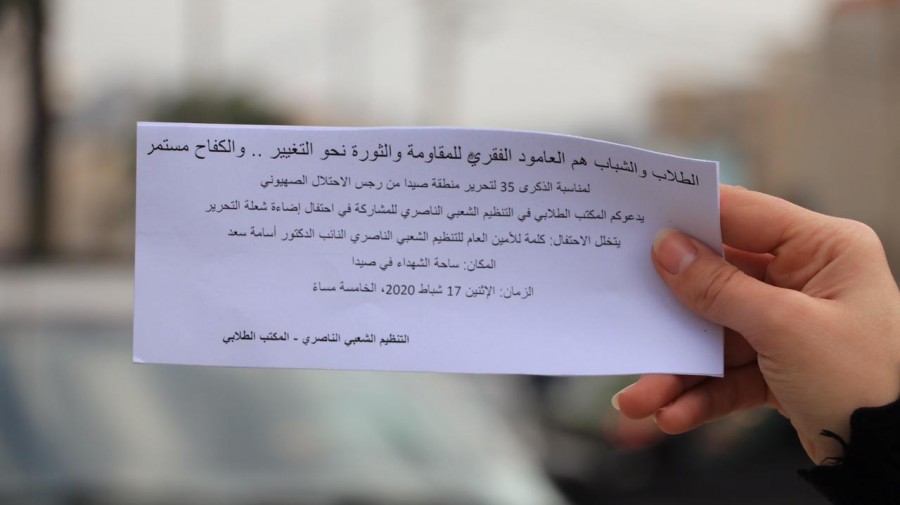 الطلاب والشباب هم العامود الفقري للمقاومة والثورة نحو التغيير .. والكفاح مستمر
لمناسبة الذكرى 35 لتحرير منطقة صيدا من رجس الاحتلال الصهيوني
يدعوكم المكتب الطلابي في التنظيم الشعبي الناصري للمشاركة في احتفال إضاءة شعلة التحرير
يتخلل الاحتفال: كلمة للأمين العام للتنظيم الشعبي الناصري النائب الدكتور أسامة سعد
المكان: ساحة الشهداء في صيدا
الزمان: الإثنين 17 شباط 2020، الخامسة مساءً
التنظيم الشعبي الناصري - المكتب الطلابي